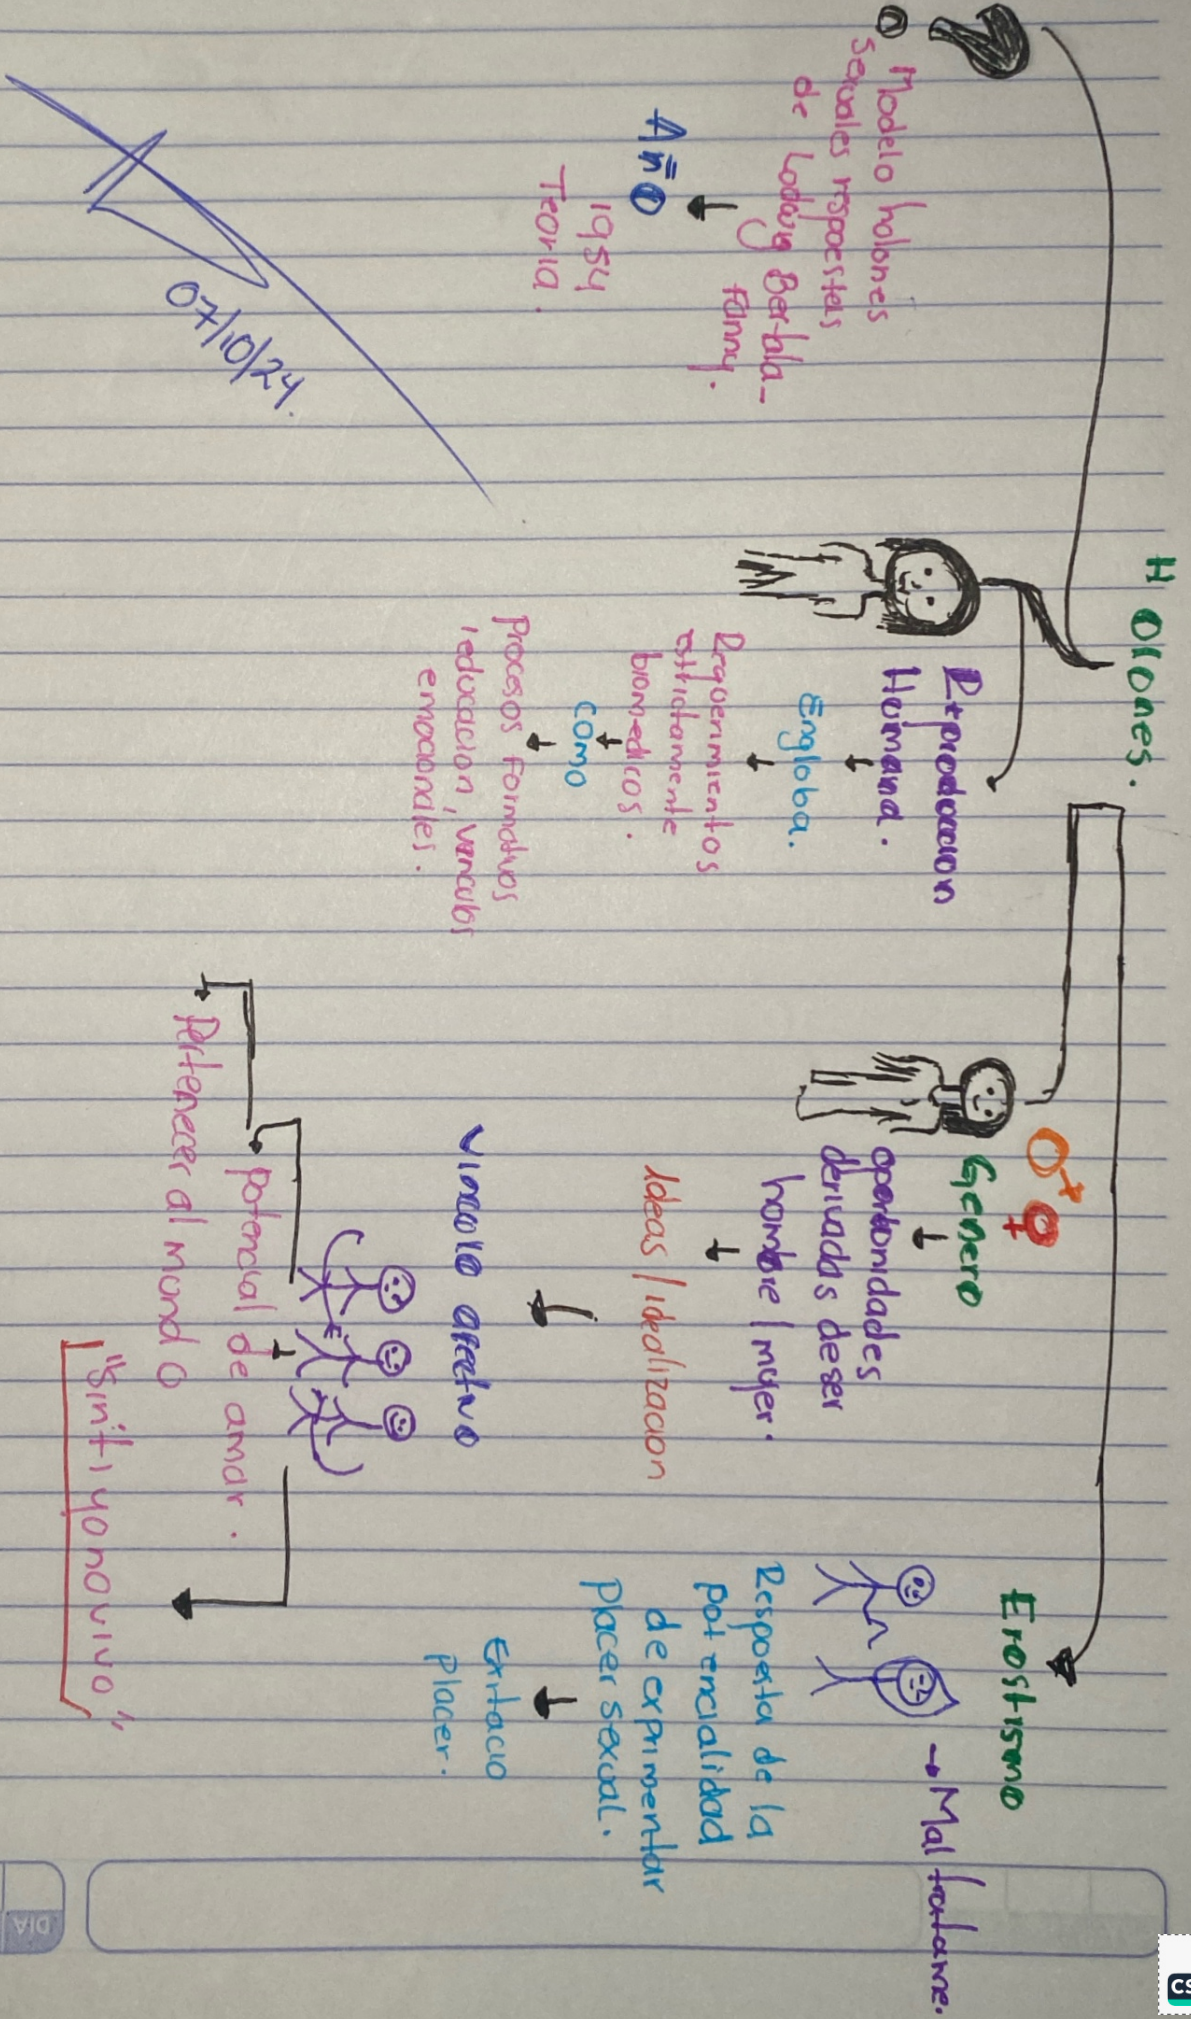 Holones.
Modelo holones
sexuales respoestas
de Lodwig Bertala-
fanny.
Año
1954
Teoria.
07/10/24.
Reprodoccion
Humana.
Engloba.
Requerimientos
estrictamente
biomedicos.
como
Procesos formativos
educacion, vinculos
emocionales.
Genero
oportonidades
derivadas de ser
hombre / mujer.
Ideas / idealizacion
vincolo afectivo
potencial de amar.
Pertenecer al mundo
"Sin ti yo no vivo"
Erostismo
→ Mal tratame.
Respoesta de la
potencialidad
de exprimentar
Placer sexual.
Exitacio
Placer.
DIA
CS